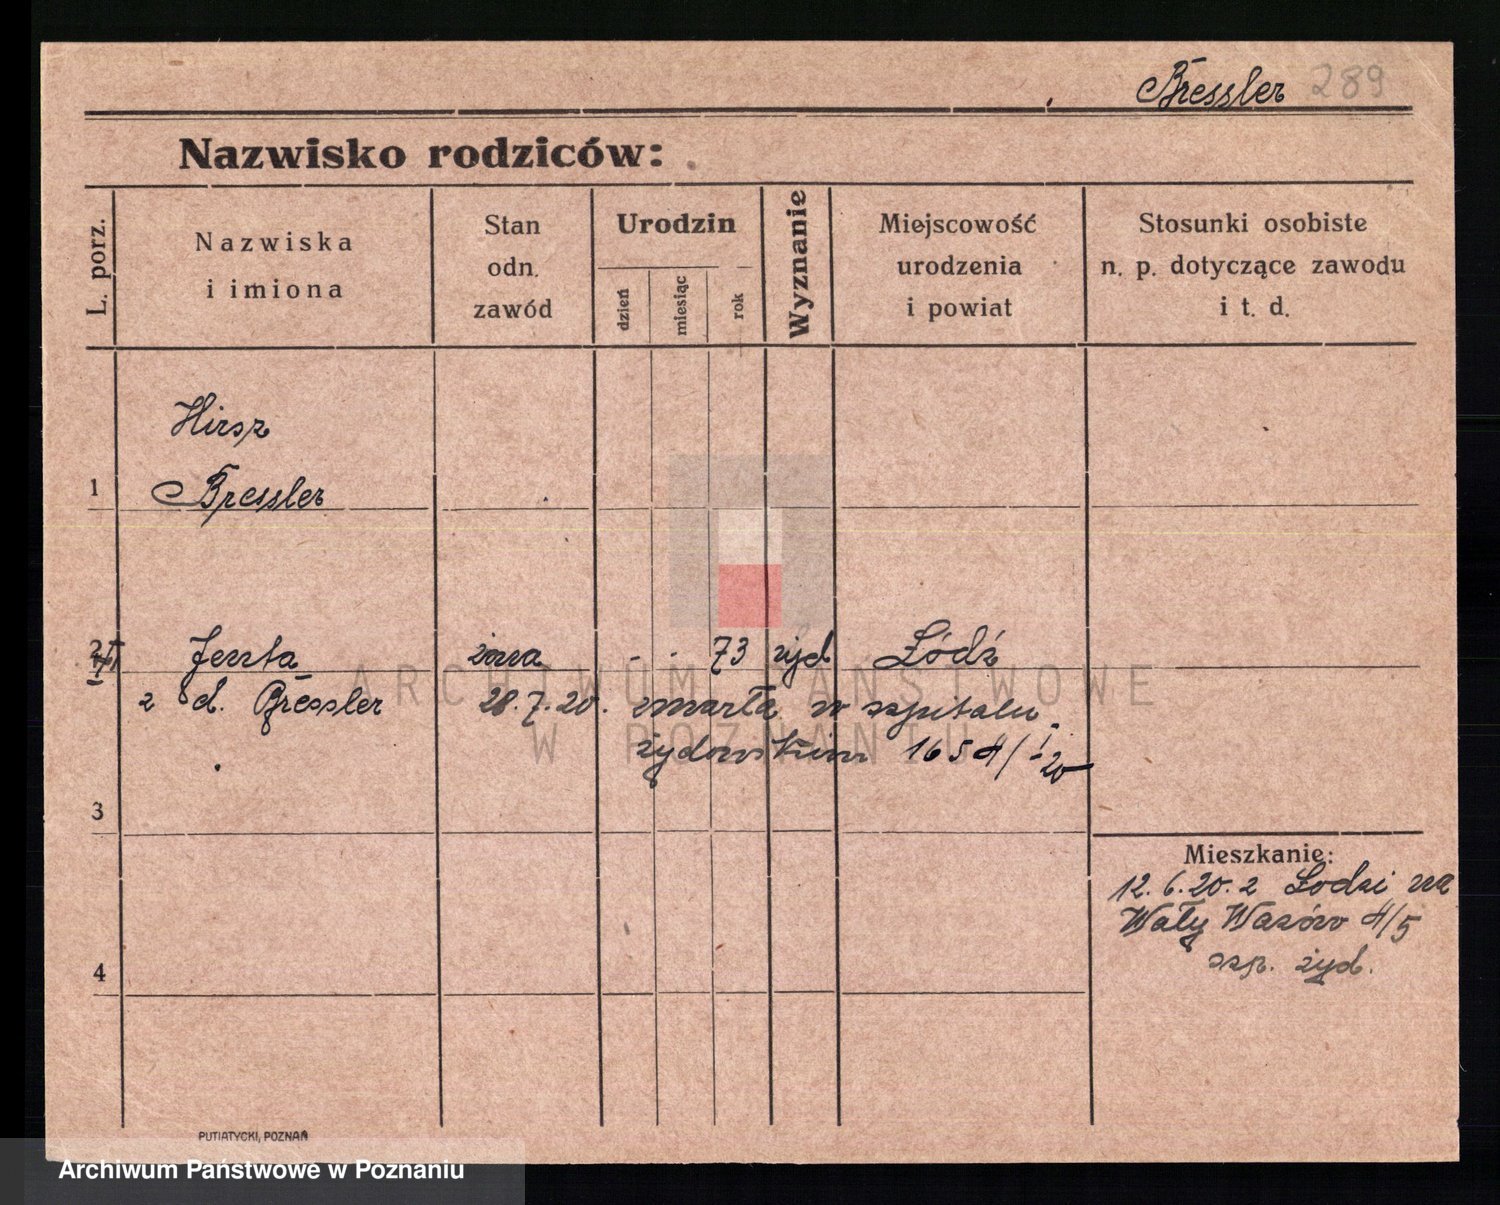 Bressler 289
Nazwisko rodziców:
L. porz.
Nazwiska
i imiona
Stan
odn.
zawód
Urodzin
dzień
miesiąc
rok
Wyznanie
Miejscowość
urodzenia
i powiat
Stosunki osobiste
n. p. dotyczące zawodu
i t. d.
Hirsz
1 Bressler
2 Jenta żona - - 73 żyd Łódź
z d. Bressler 28.7.20. zmarła w szpitalu
żydowskim 1654/I-20
3
Mieszkanie:
12.6.20. z Łodzi na
Wały Wazów 4/5
szp. żyd.
4
PUTIATYCKI, POZNAŃ
ARCHIWUM PAŃSTWOWE
W POZNANIU
Archiwum Państwowe w Poznaniu